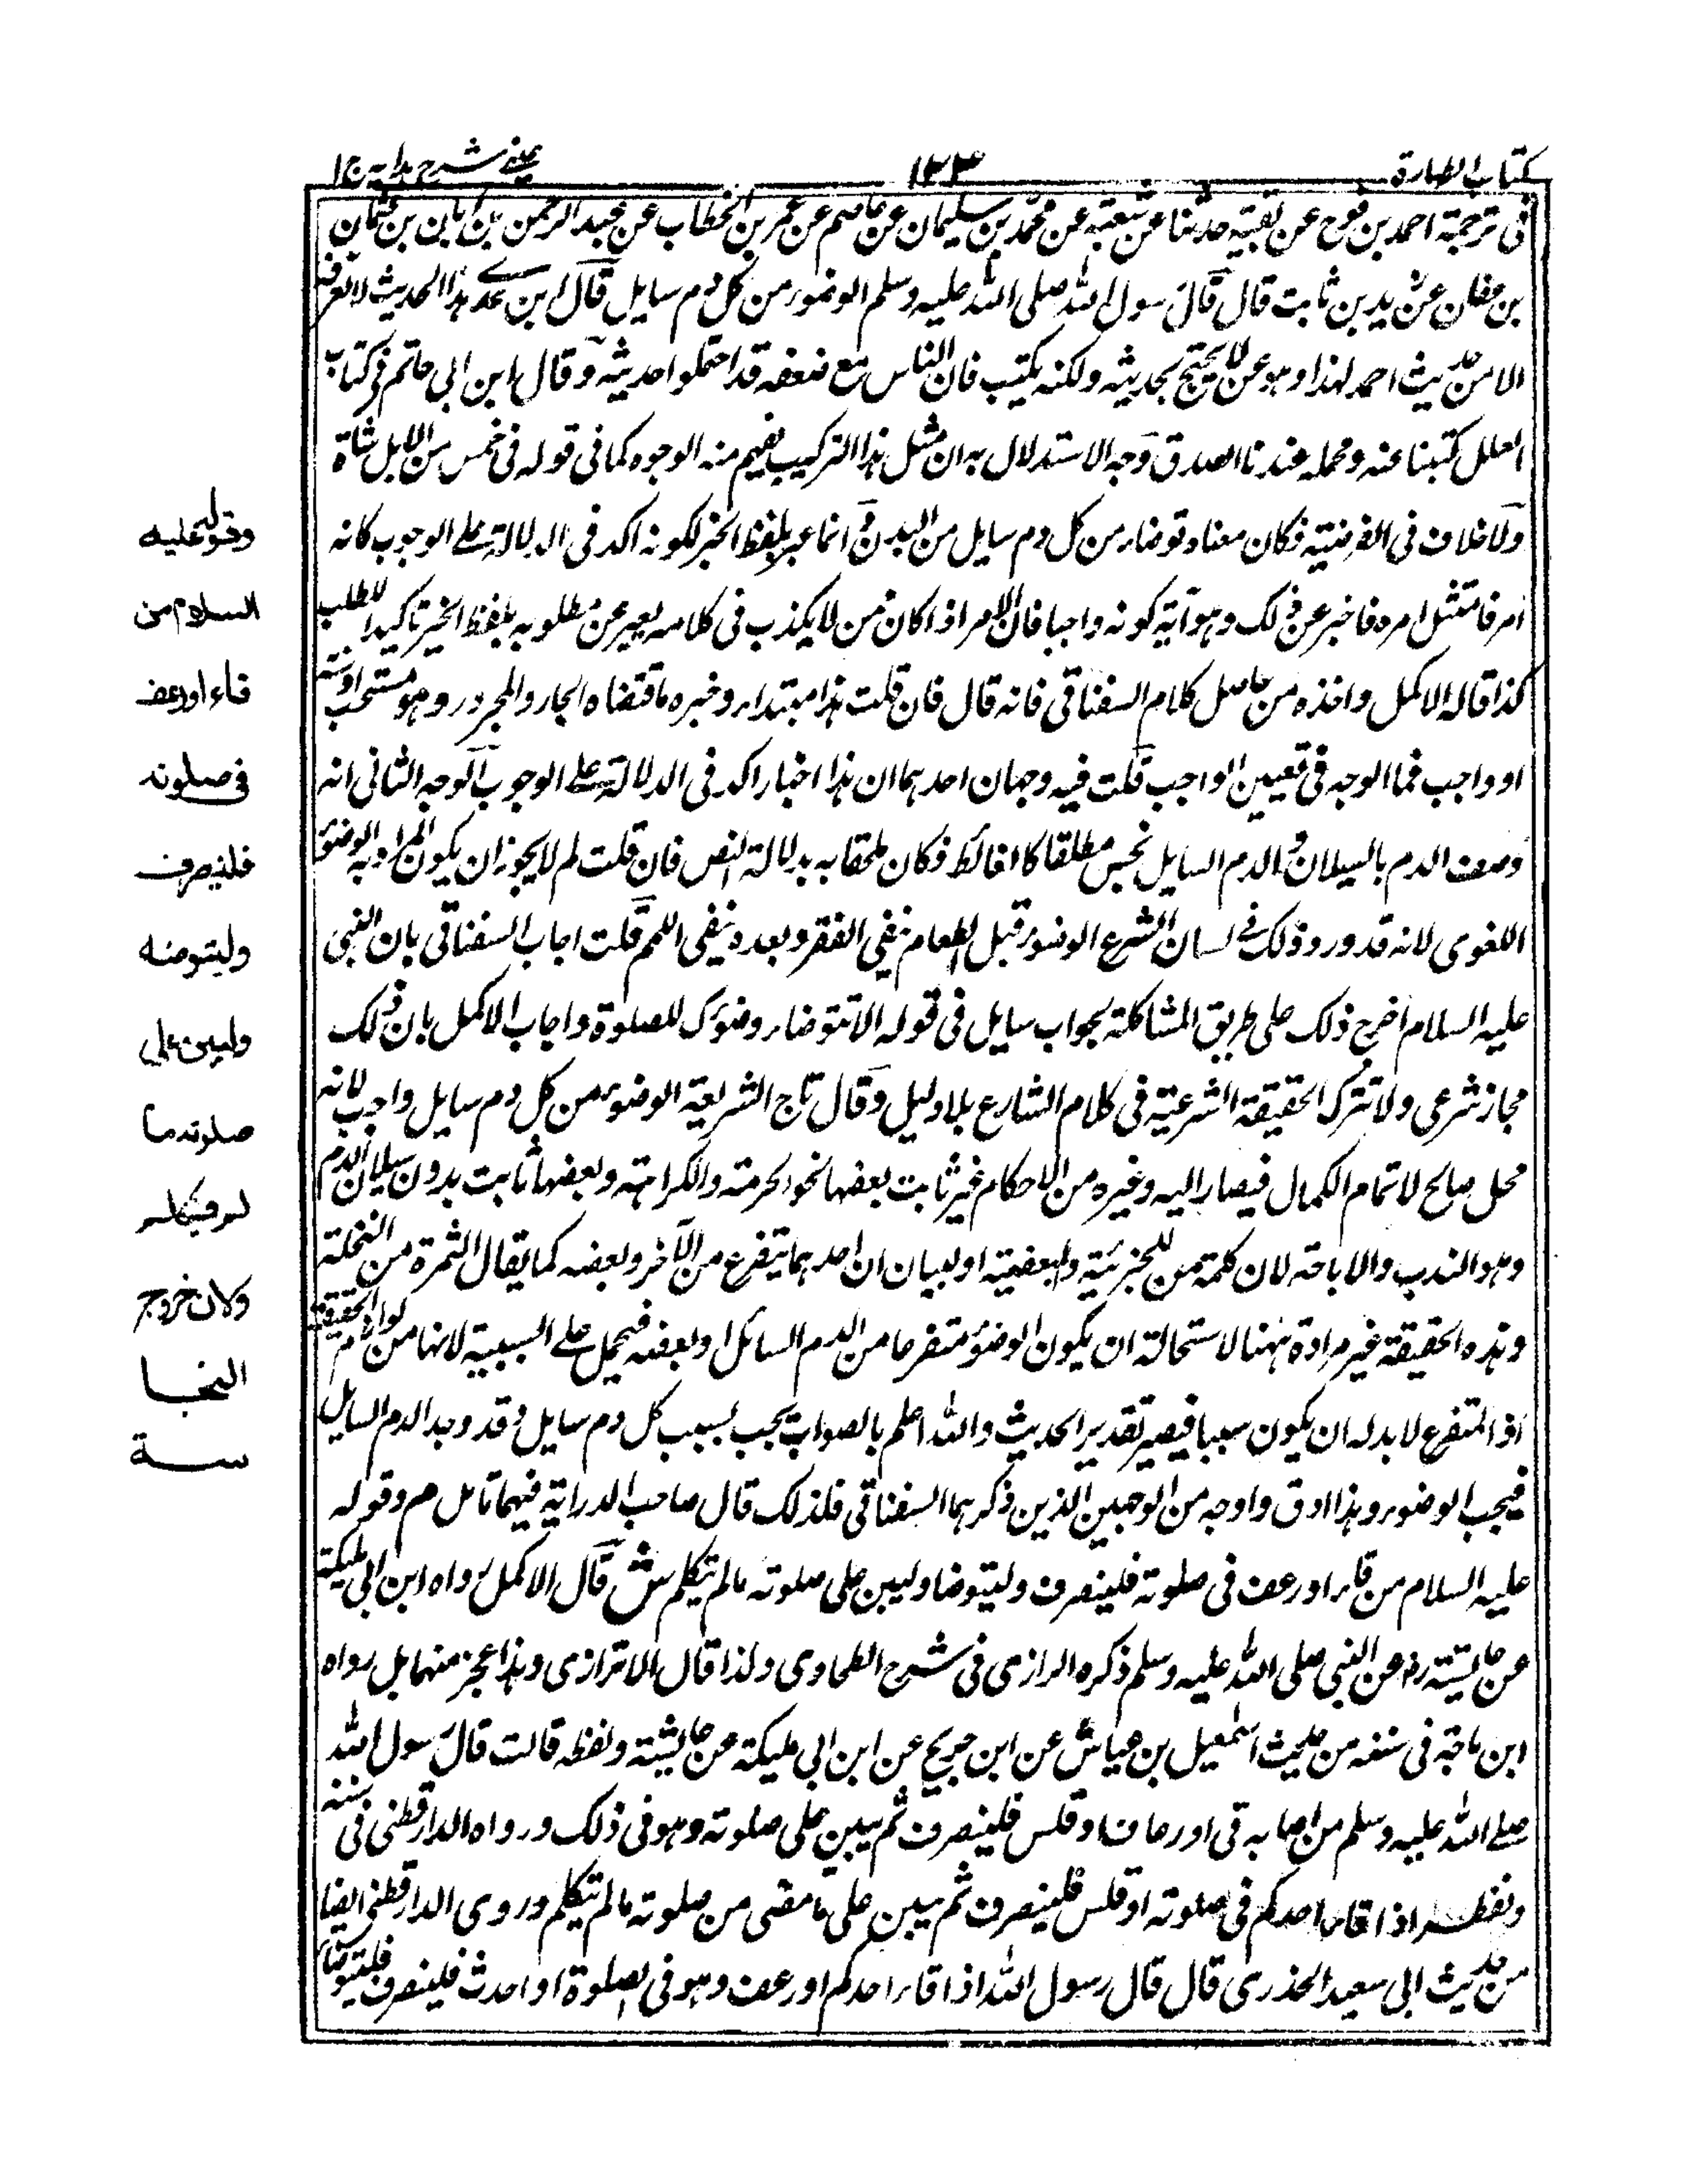 كتاب الطهارة
١٣٤
عينى شرح هداية ج ١
فى ترجمة احمد بن فرح عن بقية حدثنا عن شعبة عن محمد بن سليمان عن عاصم عن عمر بن الخطاب عن عبد الرحمن بن ابان بن عثمان
بن عفان عن زيد بن ثابت قال قال رسول الله صلى الله عليه وسلم الوضوء من كل دم سايل قال ابن عدى هذا الحديث لا نعرفه
الا من حديث احمد لهذا وهو عن لا يحتج بحديثه ولكنه يكتب فان الناس مع ضعفه قد احتملوا حديثه وقال ابن ابى حاتم فى كتاب
العلل كتبنا عنه ومحمله عندنا الصدق وجه الاستدلال به ان مثل هذا التركيب يفهم منه الوجوه كما فى قوله فى خمس من الابل شاة
ولا خلاف فى الفرضية فكان معناه توضاء من كل دم سايل من البدن وانما عبر بلفظ الخبر لكونه اكد فى الدلالة على الوجوب كانه
امر فامتثل امره فاخبر عن ذلك وهو آية كونه واجبا فان الامر اذا كان من لا يكذب فى كلامه يعبر عن مطلوبه بلفظ الخبر تاكيدا للطلب
كذا قاله الاكمل واخذه من حاصل كلام السغناقى فانه قال فان قلت هذا مبتداء وخبره ما اقتضاه الجار والمجرور وهو مستحب او سنة
او واجب فما الوجه فى تعيين الواجب قلت فيه وجهان احدهما ان هذا اخبار اكد فى الدلالة على الوجوب الوجه الثانى انه
وصف الدم بالسيلان والدم السايل نجس مطلقا كالغائط فكان ملحقا به بدلالة النص فان قلت لم لا يجوز ان يكون المراد به الوضوء
اللغوى لانه قد ورد ذلك فى لسان الشرع الوضوء قبل الطعام ينفى الفقر وبعده ينفى اللمم قلت اجاب السغناقى بان النبى
عليه السلام اخرج ذلك على طريق المشاكلة بجواب سايل فى قوله الا تتوضاء وضوءك للصلوة واجاب الاكمل بان ذلك
مجاز شرعى ولا تترك الحقيقة الشرعية فى كلام الشارع بلا دليل وقال تاج الشريعة الوضوء من كل دم سايل واجب لانه
محل صالح لاتمام الكمال فيصار اليه وغيره من الاحكام غير ثابت بعضها نحو الحرمة والكراهة وبعضها ثابت بدون سيلان الدم
وهو الندب والاباحة لان كلمة من للجزئية والبعضية او لبيان ان احدهما يتفرع من الآخر وبعضه كما يقال الثمرة من النخلة
وهذه الحقيقة غير مرادة ههنا لاستحالة ان يكون الوضوء متفرعا من الدم السائل او بعضه فيحمل على السببية لانها من لوازم الحقيقة
اذ المتفرع لا بد له ان يكون سببا فيصير تقدير الحديث والله اعلم بالصواب يجب بسبب كل دم سايل وقد وجد الدم السايل
فيجب الوضوء وهذا ادق واوجه من الوجهين الذين ذكرهما السغناقى فلذلك قال صاحب الدراية فيهما تامل م وقوله
عليه السلام من قاء او رعف فى صلوته فلينصرف وليتوضا وليبن على صلوته ما لم يتكلم ش قال الاكمل رواه ابن ابى مليكة
عن عايشة رض عن النبى صلى الله عليه وسلم ذكره الرازى فى شرح الطحاوى ولذا قال الاترازى وهذا عجز منهما بل رواه
ابن ماجة فى سننه من حديث اسمعيل بن عياش عن ابن جريج عن ابن ابى مليكة عن عايشة ولفظه قالت قال رسول الله
صلى الله عليه وسلم من اصابه قى او رعاف او قلس فلينصرف ثم ليبن على صلوته وهو فى ذلك ورواه الدارقطنى فى سننه
ولفظه اذا قاء احدكم فى صلوته او قلس فلينصرف ثم ليبن على ما مضى من صلوته ما لم يتكلم وروى الدارقطنى ايضا
من حديث ابى سعيد الخدرى قال قال رسول الله اذا قاء احدكم او رعف وهو فى الصلوة او احدث فلينصرف فليتوضا
وقوله عليه
السلام من
قاء او رعف
فى صلوته
فلينصرف
وليتوضه
وليبن على
صلوته ما
لم يتكلم
ولان خروج
النجا
سة